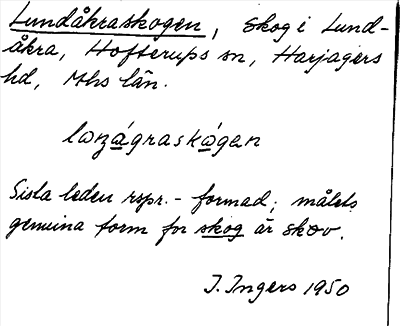 Lundåkraskogen, skog i Lund-
åkra, Hofterups sn, Harjagers
hd, Mhs län.
lɷnågraskågan
Sista leden rspr.-formad; målets
genuina form för skog är skɷv.
I. Ingers 1950